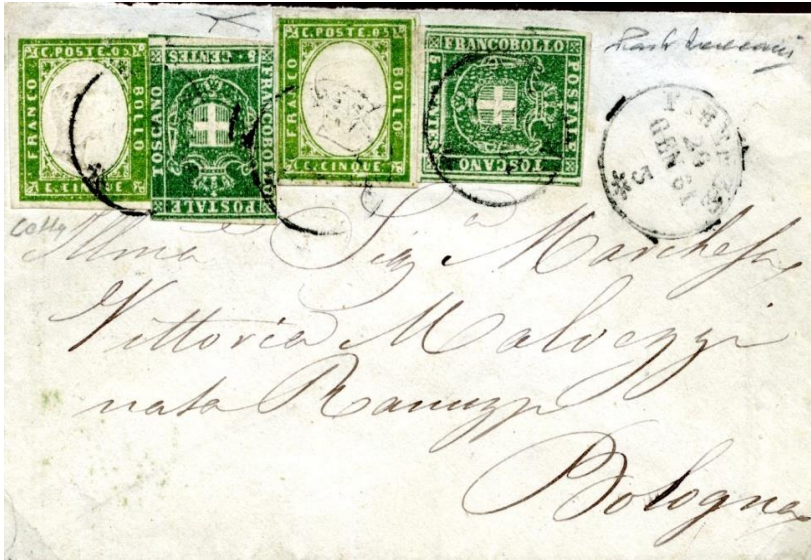 C. POSTE. 05
FRANCO
BOLLO
C. CINQUE
5 CENTES
FRANCOBOLLO
TOSCANO
POSTALE
C. POSTE. 05
FRANCO
BOLLO
C. CINQUE
FRANCOBOLLO
POSTALE
TOSCANO
FIRENZE
26
GEN 61
5
Colla
Illma Sig.a Marchesa
Vittoria Malvezzi
nata Ranuzzi
Bologna